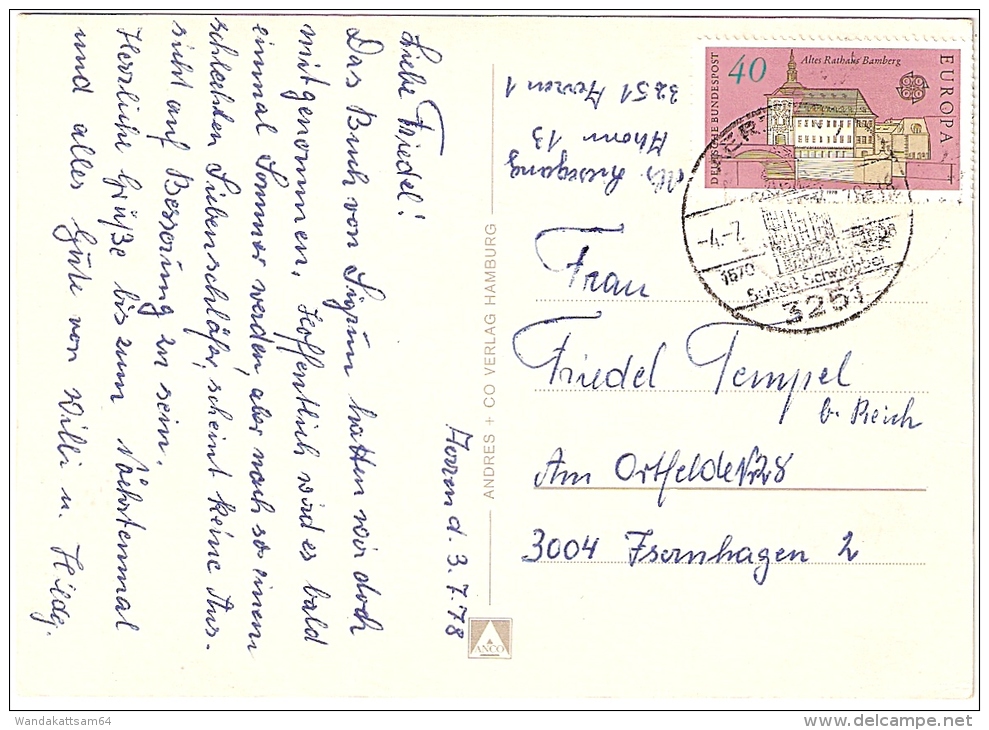 Herren d. 3.7.78
Liebe Friedel!
Das Buch von Sigrun hatten wir doch
mitgenommen. Hoffentlich wird es bald
einmal Sommer werden, aber nach so einem
schlechten Siebenschläfer, scheint keine Aus-
sicht auf Besserung zu sein.
Herzliche Grüße bis zum Nächstenmal
und alles Gute von Willi u. Hildg.
ANDRES + CO VERLAG HAMBURG
ANCO
Ahorn 13
3251 Herren 1
DEUTSCHE BUNDESPOST
40
Altes Rathaus Bamberg
EUROPA
-4.-7.
1570
Schloß Schwöbber
3251
Frau
Friedel Tempel
b. Reich
Am Ortfelde Nr 28
3004 Isernhagen 2
Wandakattsam64
www.delcampe.net